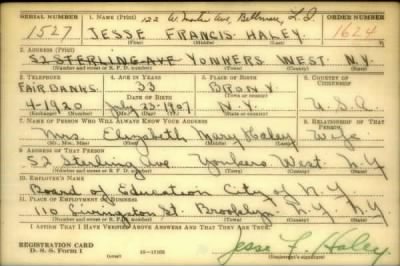 SERIAL NUMBER 1. NAME (Print) 122 W. Ave, Bellmore, L.I. ORDER NUMBER
1527 JESSE FRANCIS HALEY 1624
(First) (Middle) (Last)
2. ADDRESS (Print)
52 STERLING AVE YONKERS WEST. N.Y.
(Number and street or R. F. D. number) (Town) (County) (State)
3. TELEPHONE 4. AGE IN YEARS 5. PLACE OF BIRTH 6. COUNTRY OF CITIZENSHIP
FAIRBANKS 33 BRONX
DATE OF BIRTH (Town or county)
4-1920 July 23-1907 N.Y. U.S.A.
(Exchange) (Number) (Mo.) (Day) (Yr.) (State or country)
7. NAME OF PERSON WHO WILL ALWAYS KNOW YOUR ADDRESS 8. RELATIONSHIP OF THAT PERSON
Mrs. Elizabeth Mary Haley Wife
(Mr., Mrs., Miss) (First) (Middle) (Last)
9. ADDRESS OF THAT PERSON
52 Sterling Ave Yonkers West. N.Y.
(Number and street or R. F. D. number) (Town) (County) (State)
10. EMPLOYER'S NAME
Board of Education City of N.Y.
11. PLACE OF EMPLOYMENT OR BUSINESS
110 Livingston St. Brooklyn N.Y. N.Y.
(Number and street or R. F. D. number) (Town) (County) (State)
I AFFIRM THAT I HAVE VERIFIED ABOVE ANSWERS AND THAT THEY ARE TRUE.
REGISTRATION CARD
D. S. S. Form 1 Jesse F. Haley.
(Registrant's signature)